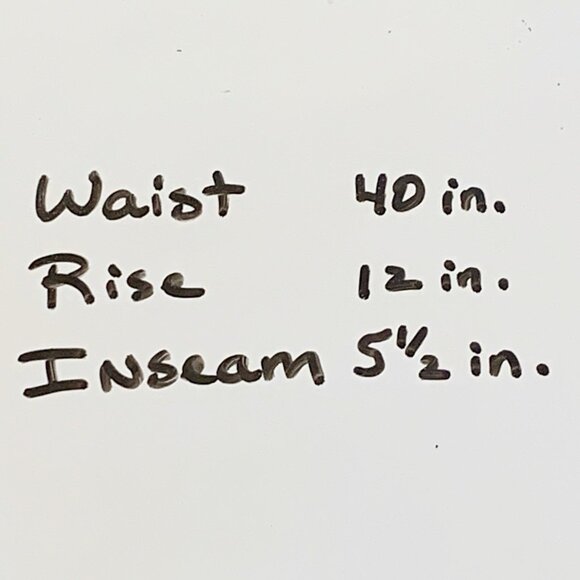 Waist 40 in.
Rise 12 in.
Inseam 5 1/2 in.